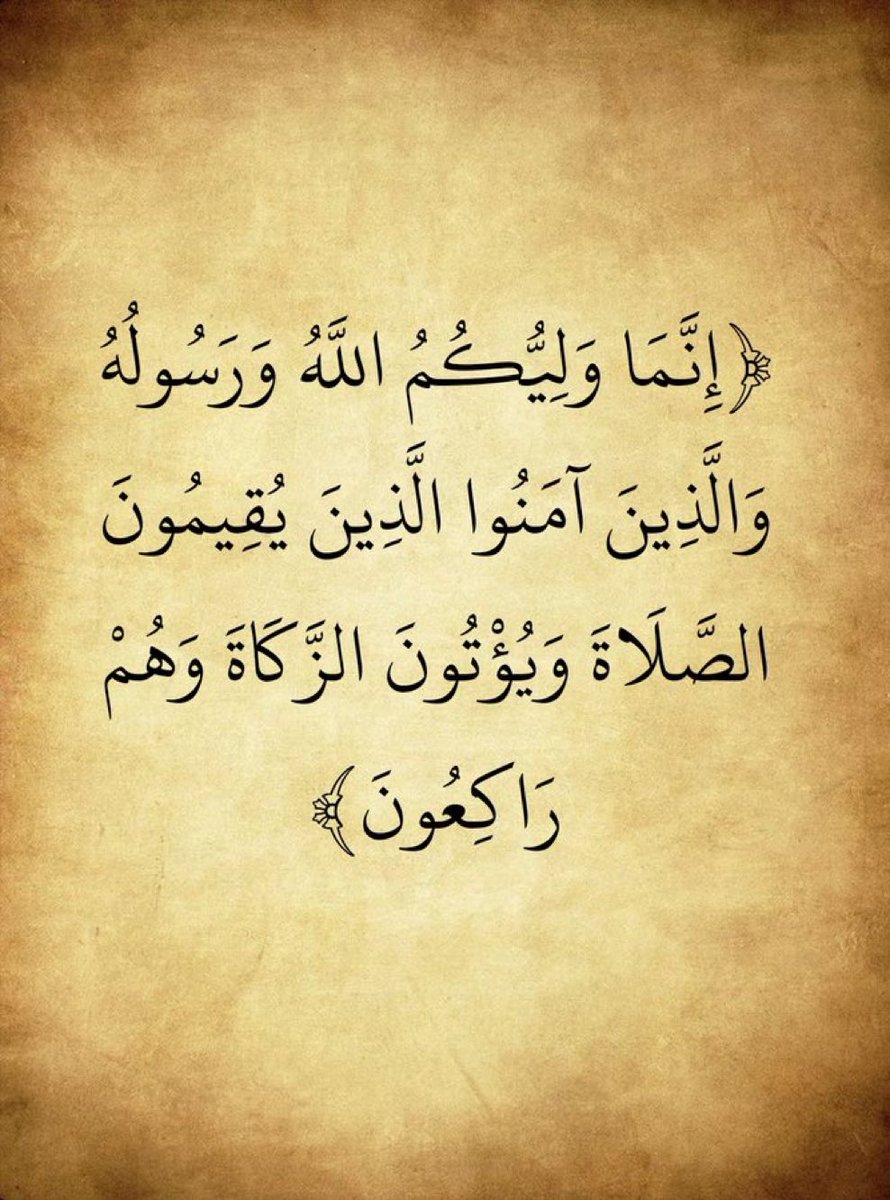 ﴿إِنَّمَا وَلِيُّكُمُ اللَّهُ وَرَسُولُهُ
وَالَّذِينَ آمَنُوا الَّذِينَ يُقِيمُونَ
الصَّلَاةَ وَيُؤْتُونَ الزَّكَاةَ وَهُمْ
رَاكِعُونَ﴾